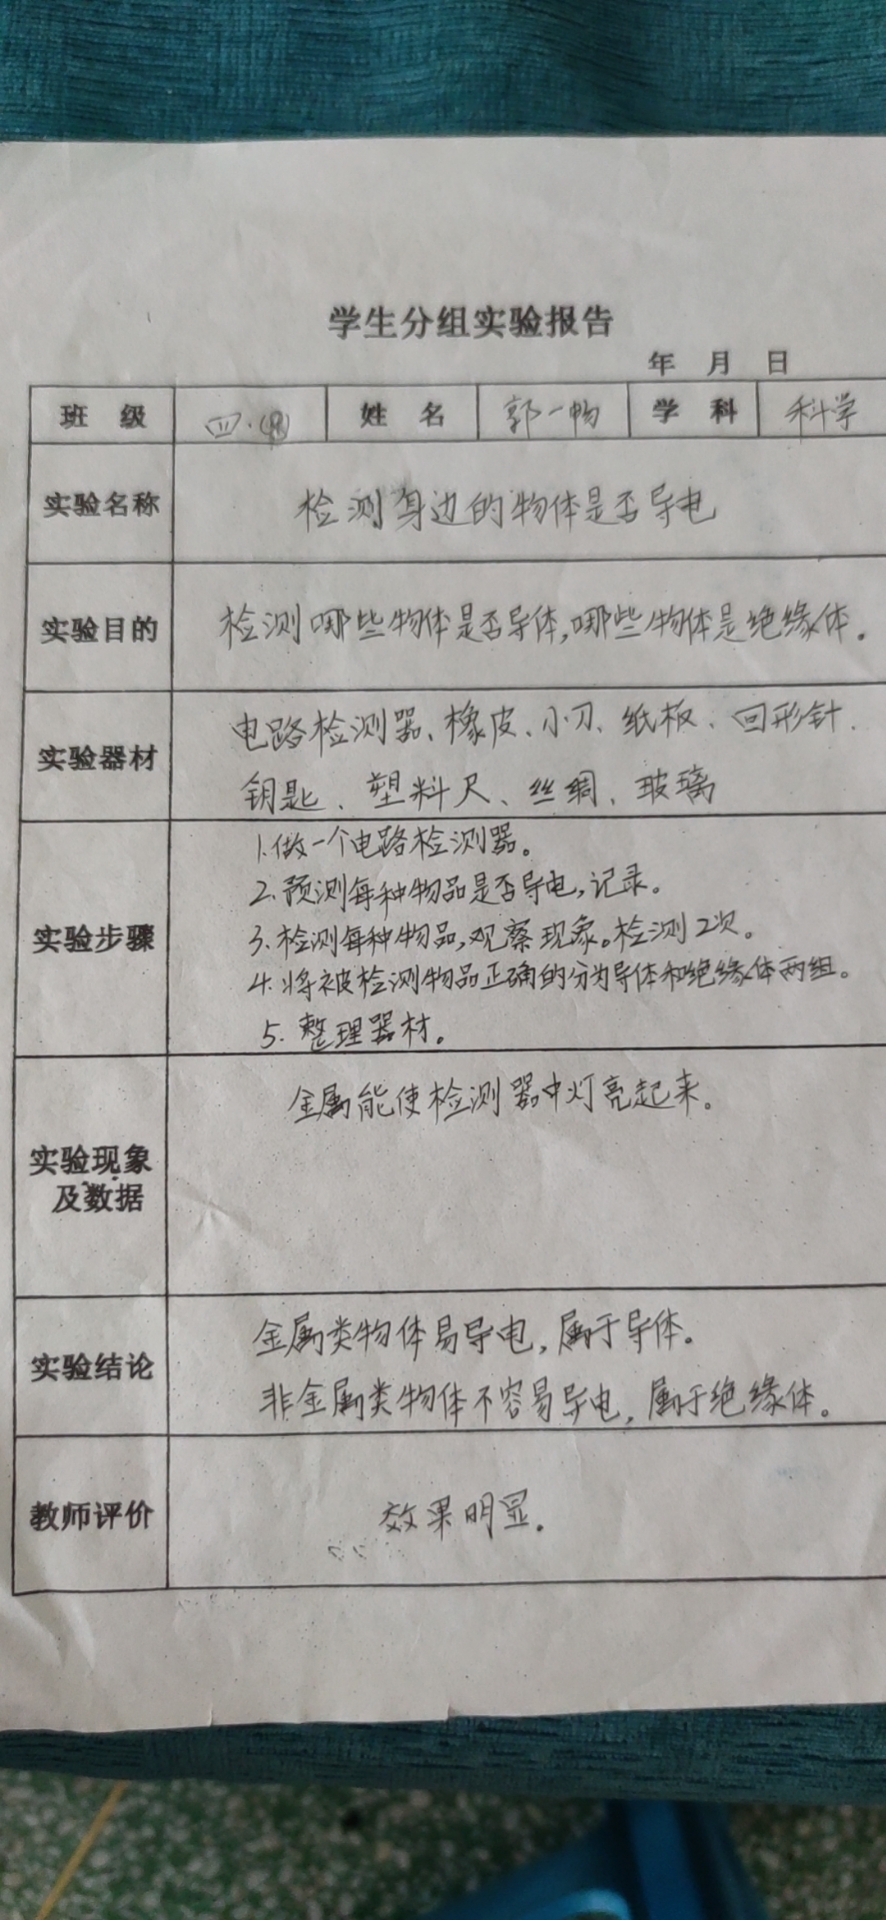 学生分组实验报告
年 月 日
班 级 四. 姓 名 郭一畅 学 科 科学
实验名称 检测身边的物体是否导电
实验目的 检测哪些物体是否导体,哪些物体是绝缘体.
实验器材 电路检测器、橡皮、小刀、纸板、回形针.
钥匙、塑料尺、丝绸、玻璃
实验步骤 1.做一个电路检测器。
2.预测每种物品是否导电,记录。
3.检测每种物品,观察现象。检测2次。
4.将被检测物品正确的分为导体和绝缘体两组。
5.整理器材。
实验现象
及数据
金属能使检测器中灯亮起来。
实验结论 金属类物体易导电,属于导体。
非金属类物体不容易导电,属于绝缘体。
教师评价 效果明显.